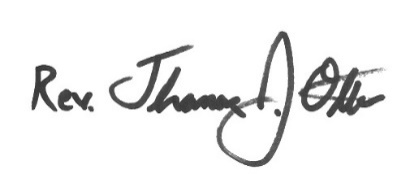 Rev. Thomas J. Otto